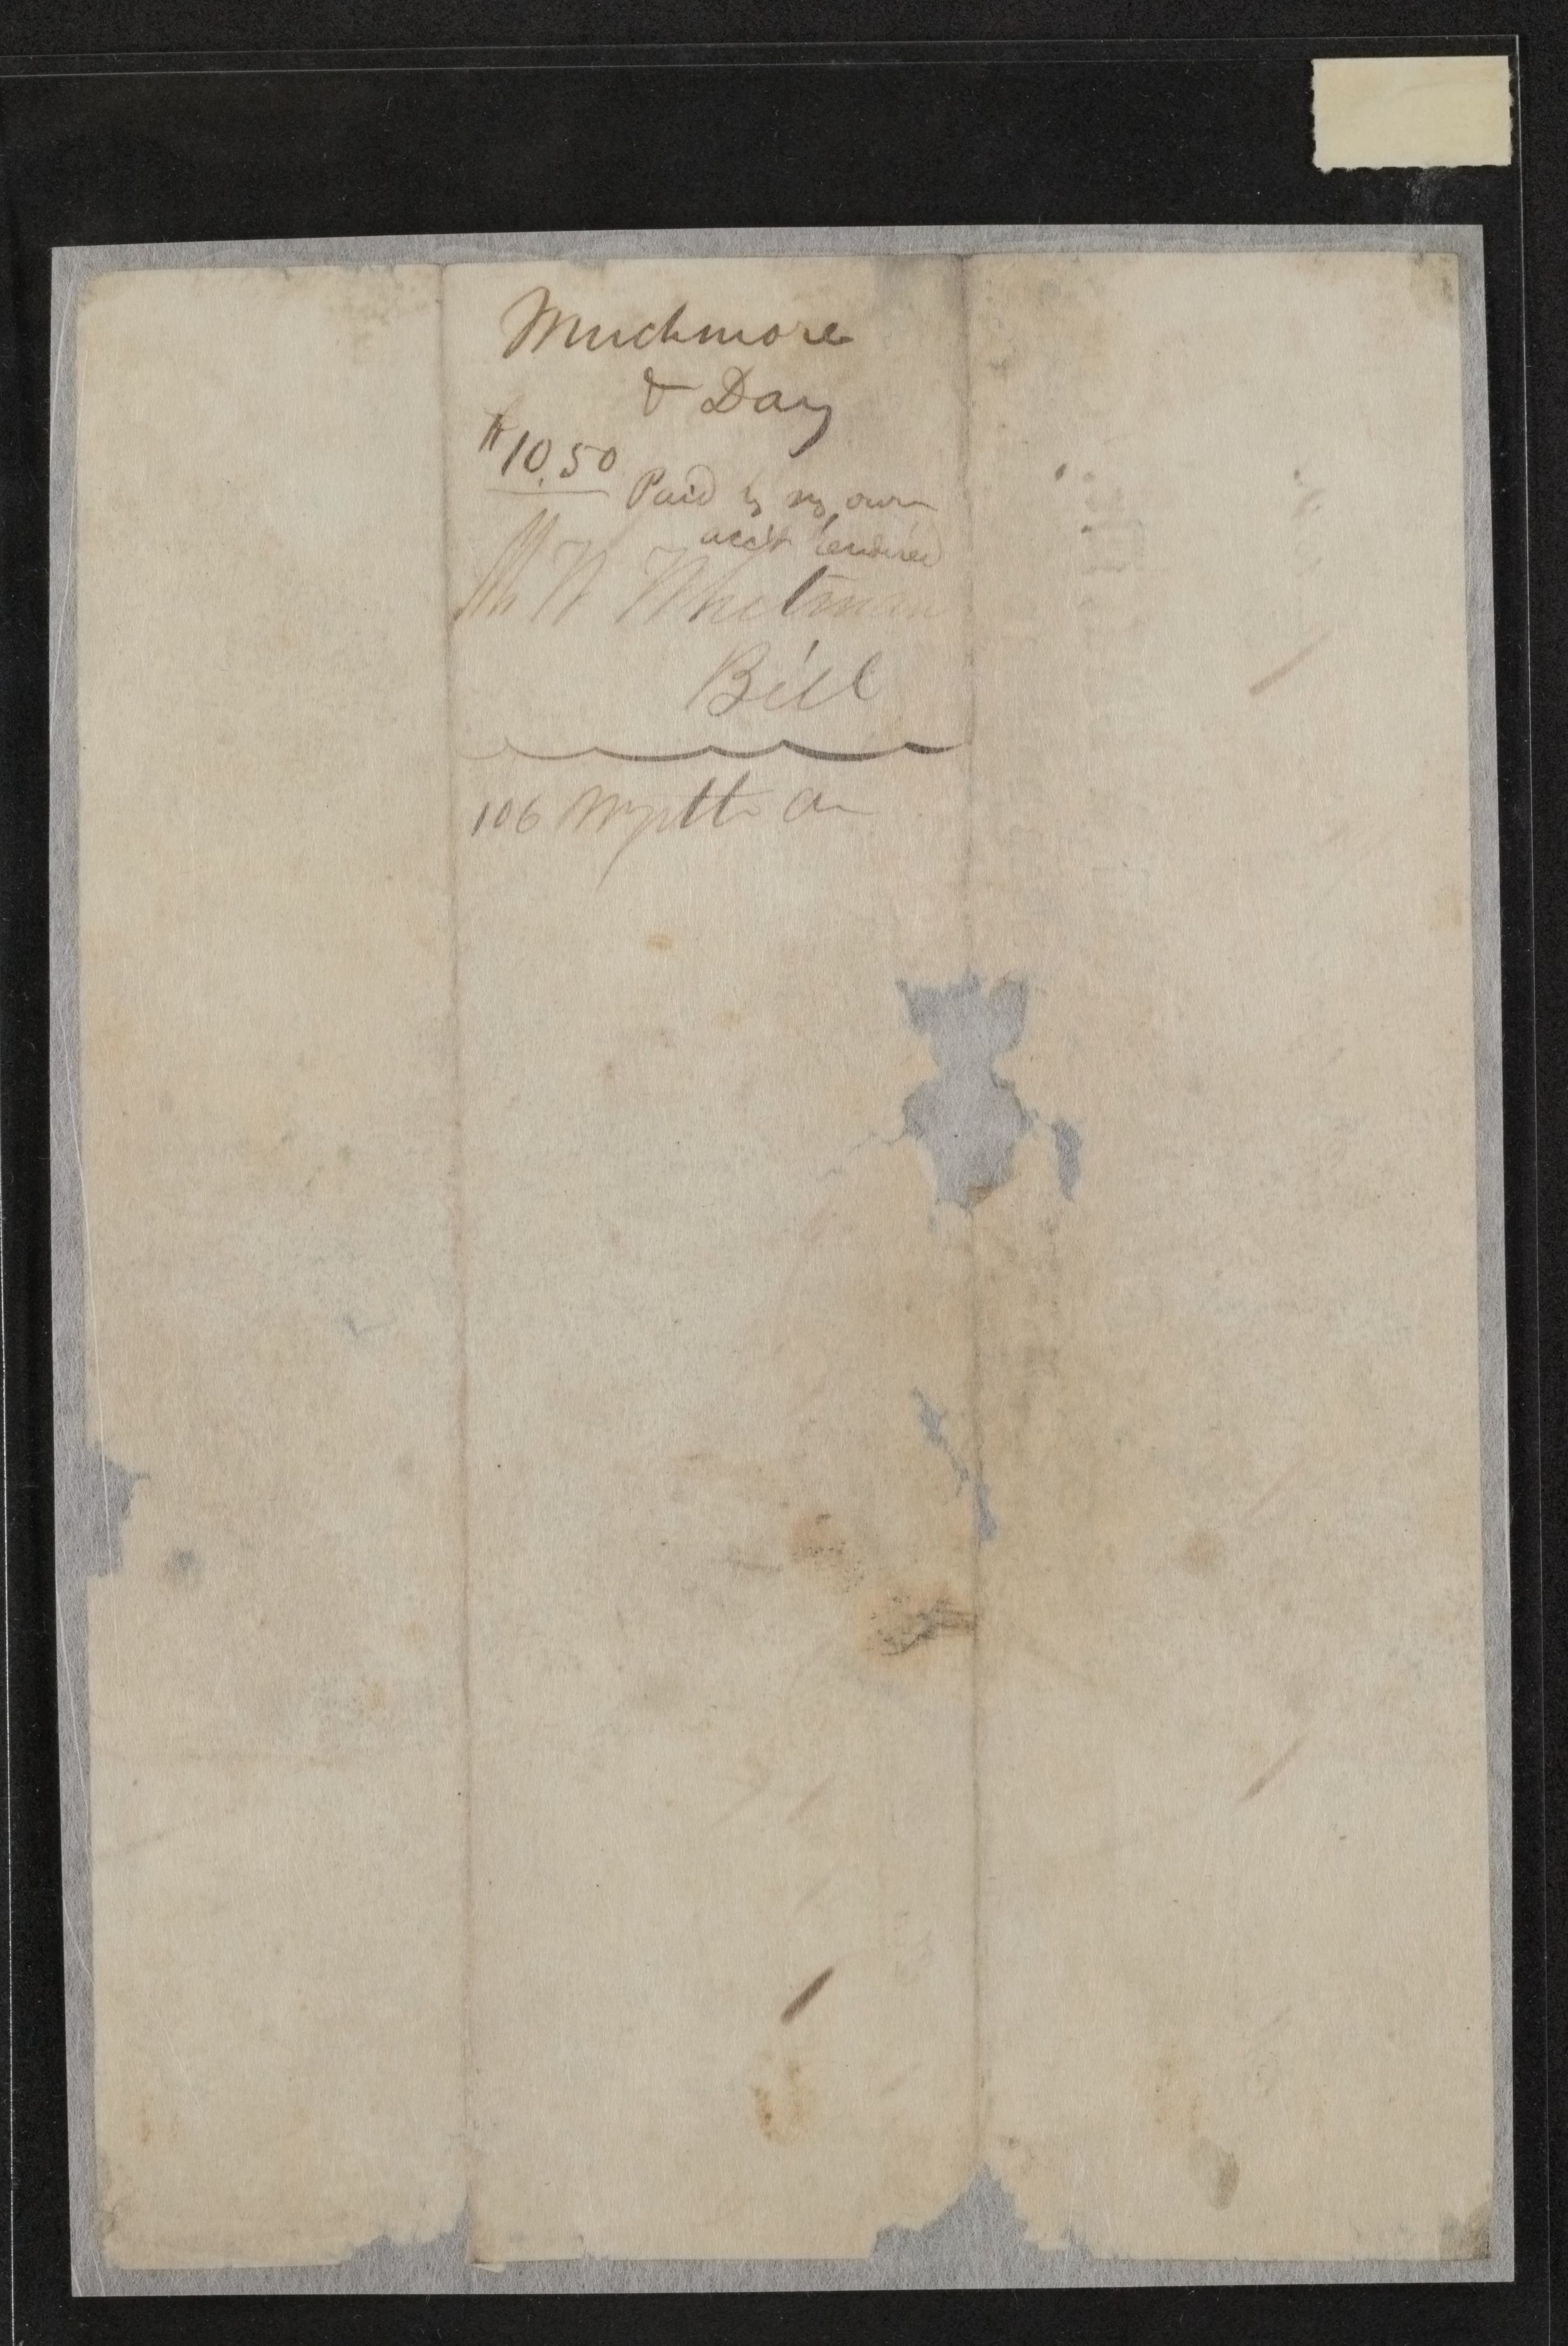 Muchmore
& Day
$10.50
Paid by my own
acc't rendered
Mr W Whitman
Bill
106 Myrtle Av